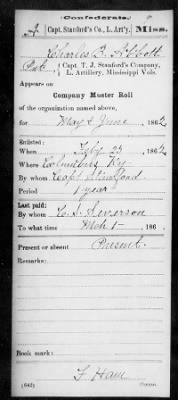 (Confederate.)
A, Capt. Stanford's Co., L. Art'y. Miss.
Charles B. Abbott
Capt. T. J. Stanford's Company,
L. Artillery, Mississippi Vols.
Appears on
Company Muster Roll
of the organization named above,
for May & June, 1862
Enlisted:
When Feby 27, 1862
Where Columbus Ky
By whom Capt Stanford
Period 1 year
Last paid:
By whom C. S. Severson
To what time Mch 1 -, 186
Present or absent Present.
Remarks:
Book mark:
(642)
Copyist.